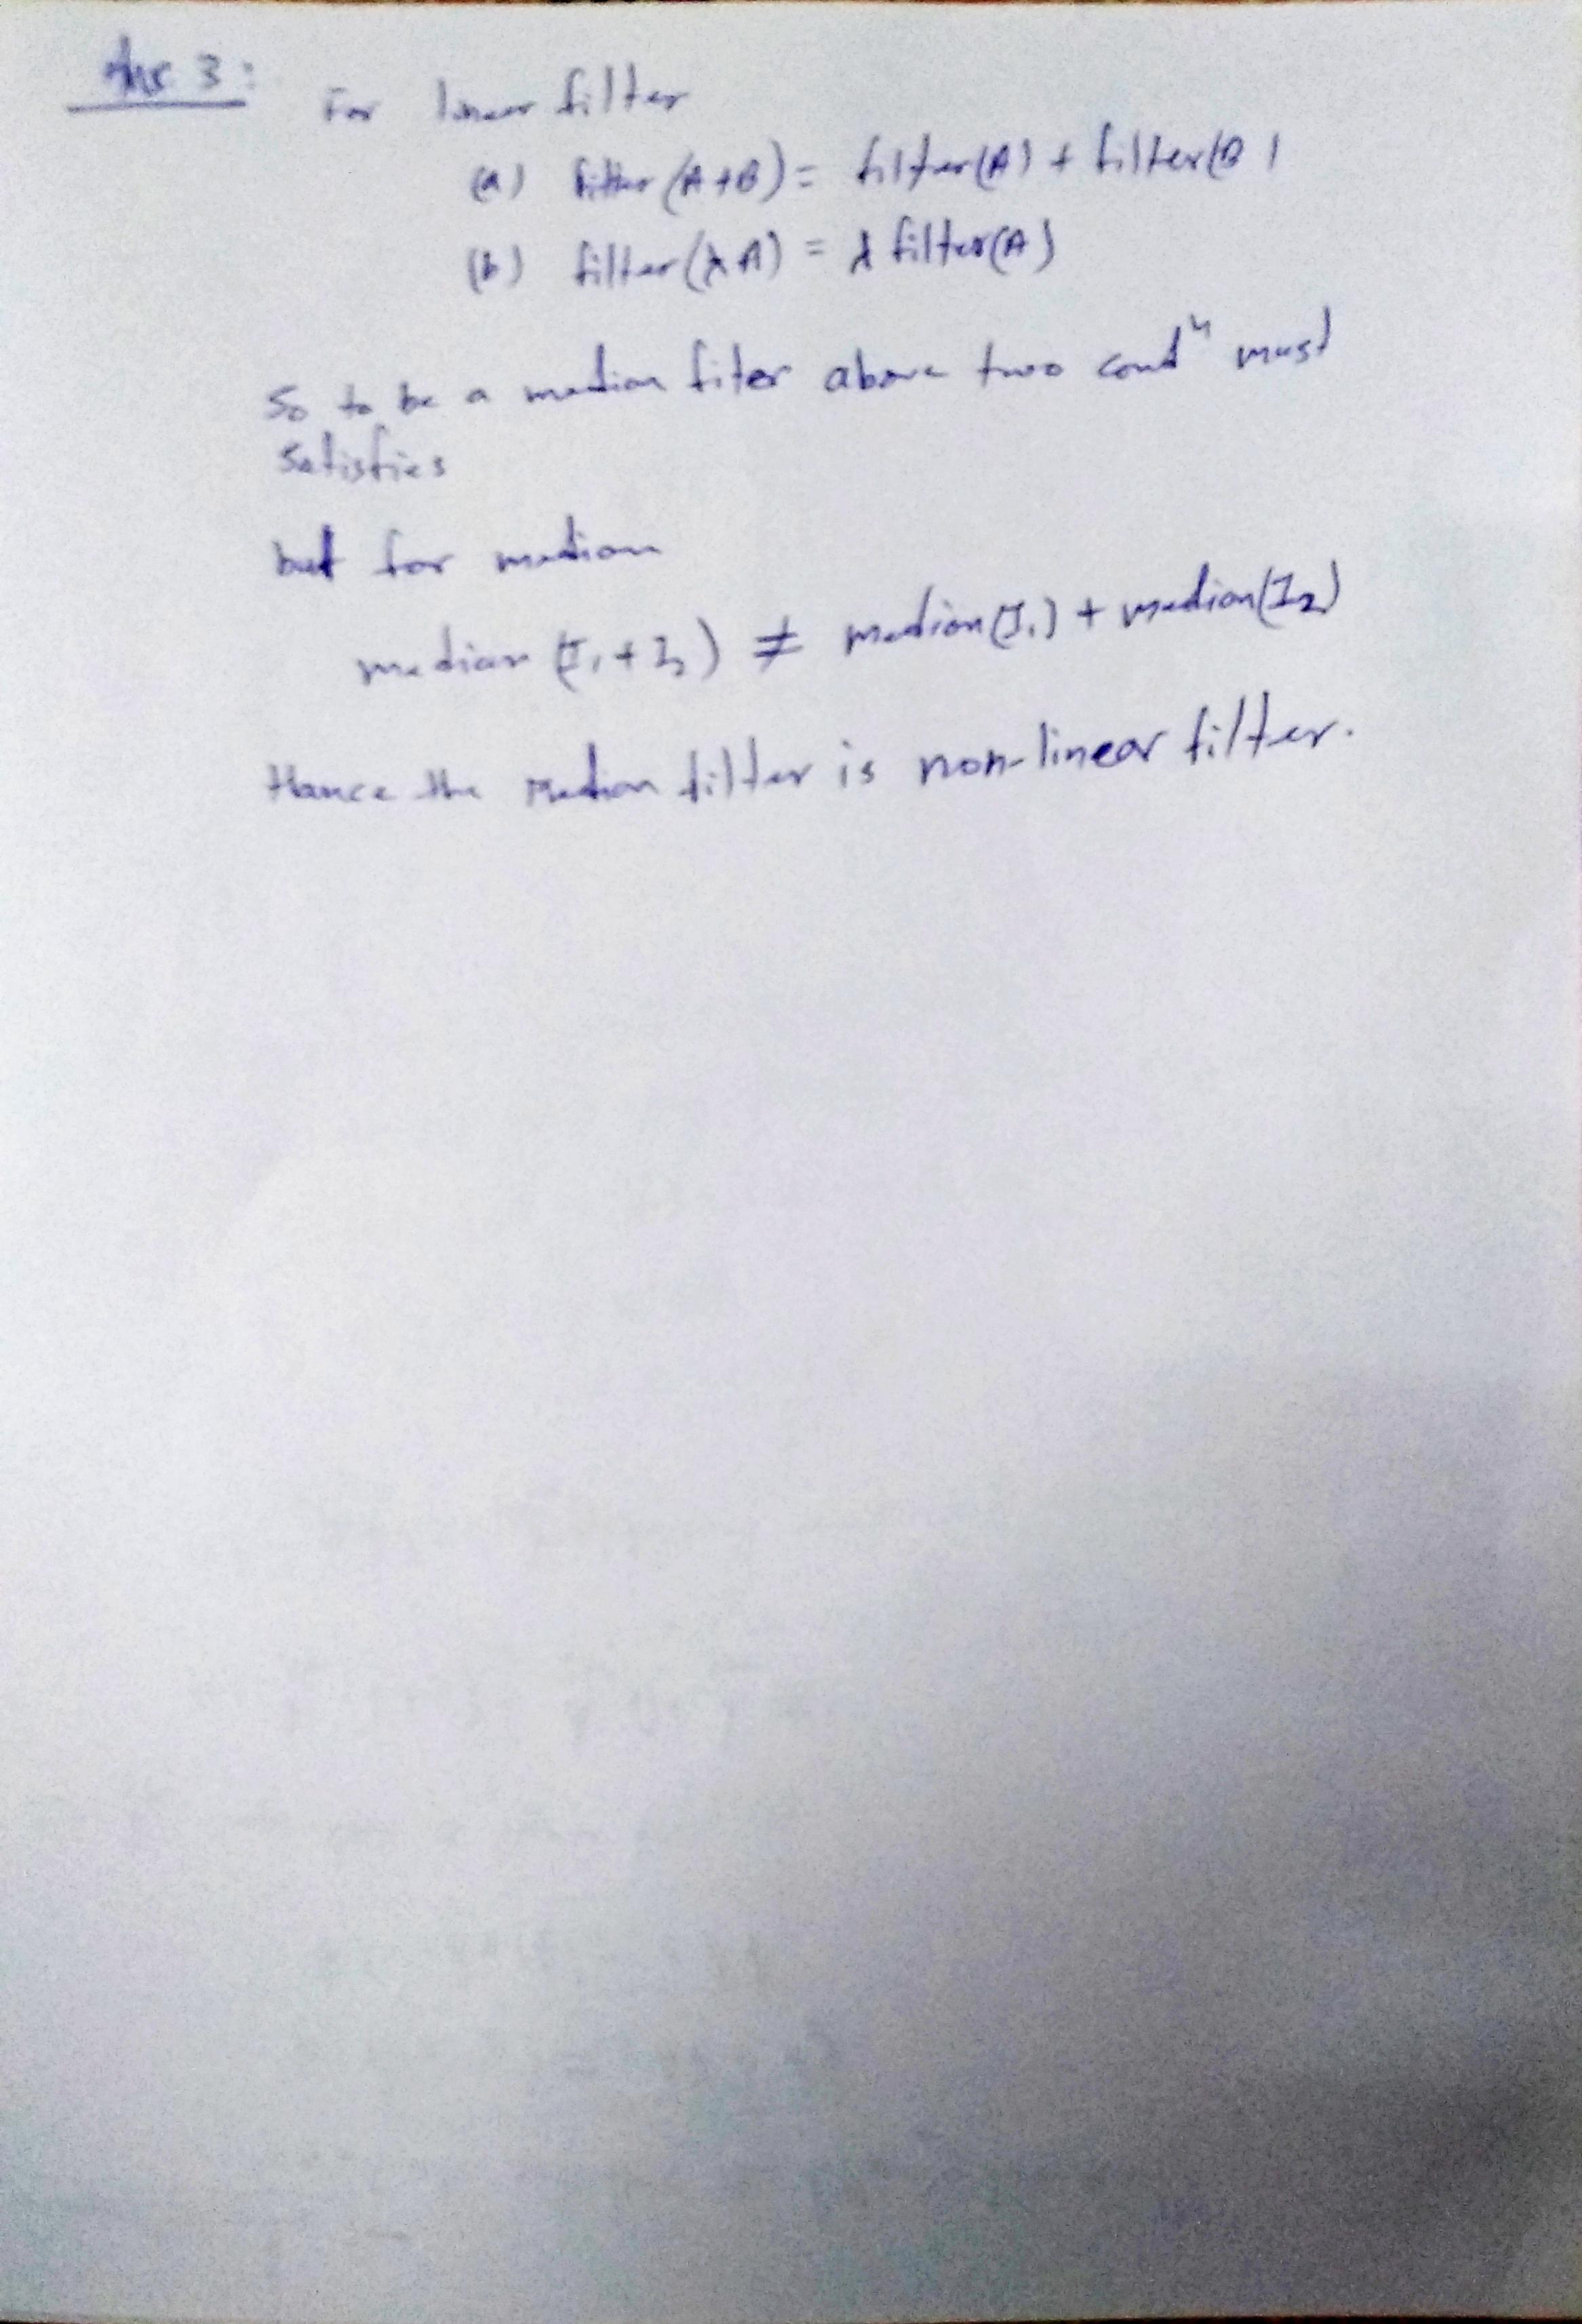 Ans 3:
For linear filter
(a) filter (A+B) = filter(A) + filter(B)
(b) filter(λA) = λ filter(A)
So to be a median filer above two condⁿ must
satisfies
but for median
median (I₁+I₂) ≠ median(I₁) + median(I₂)
Hance the Median filter is non-linear filter.